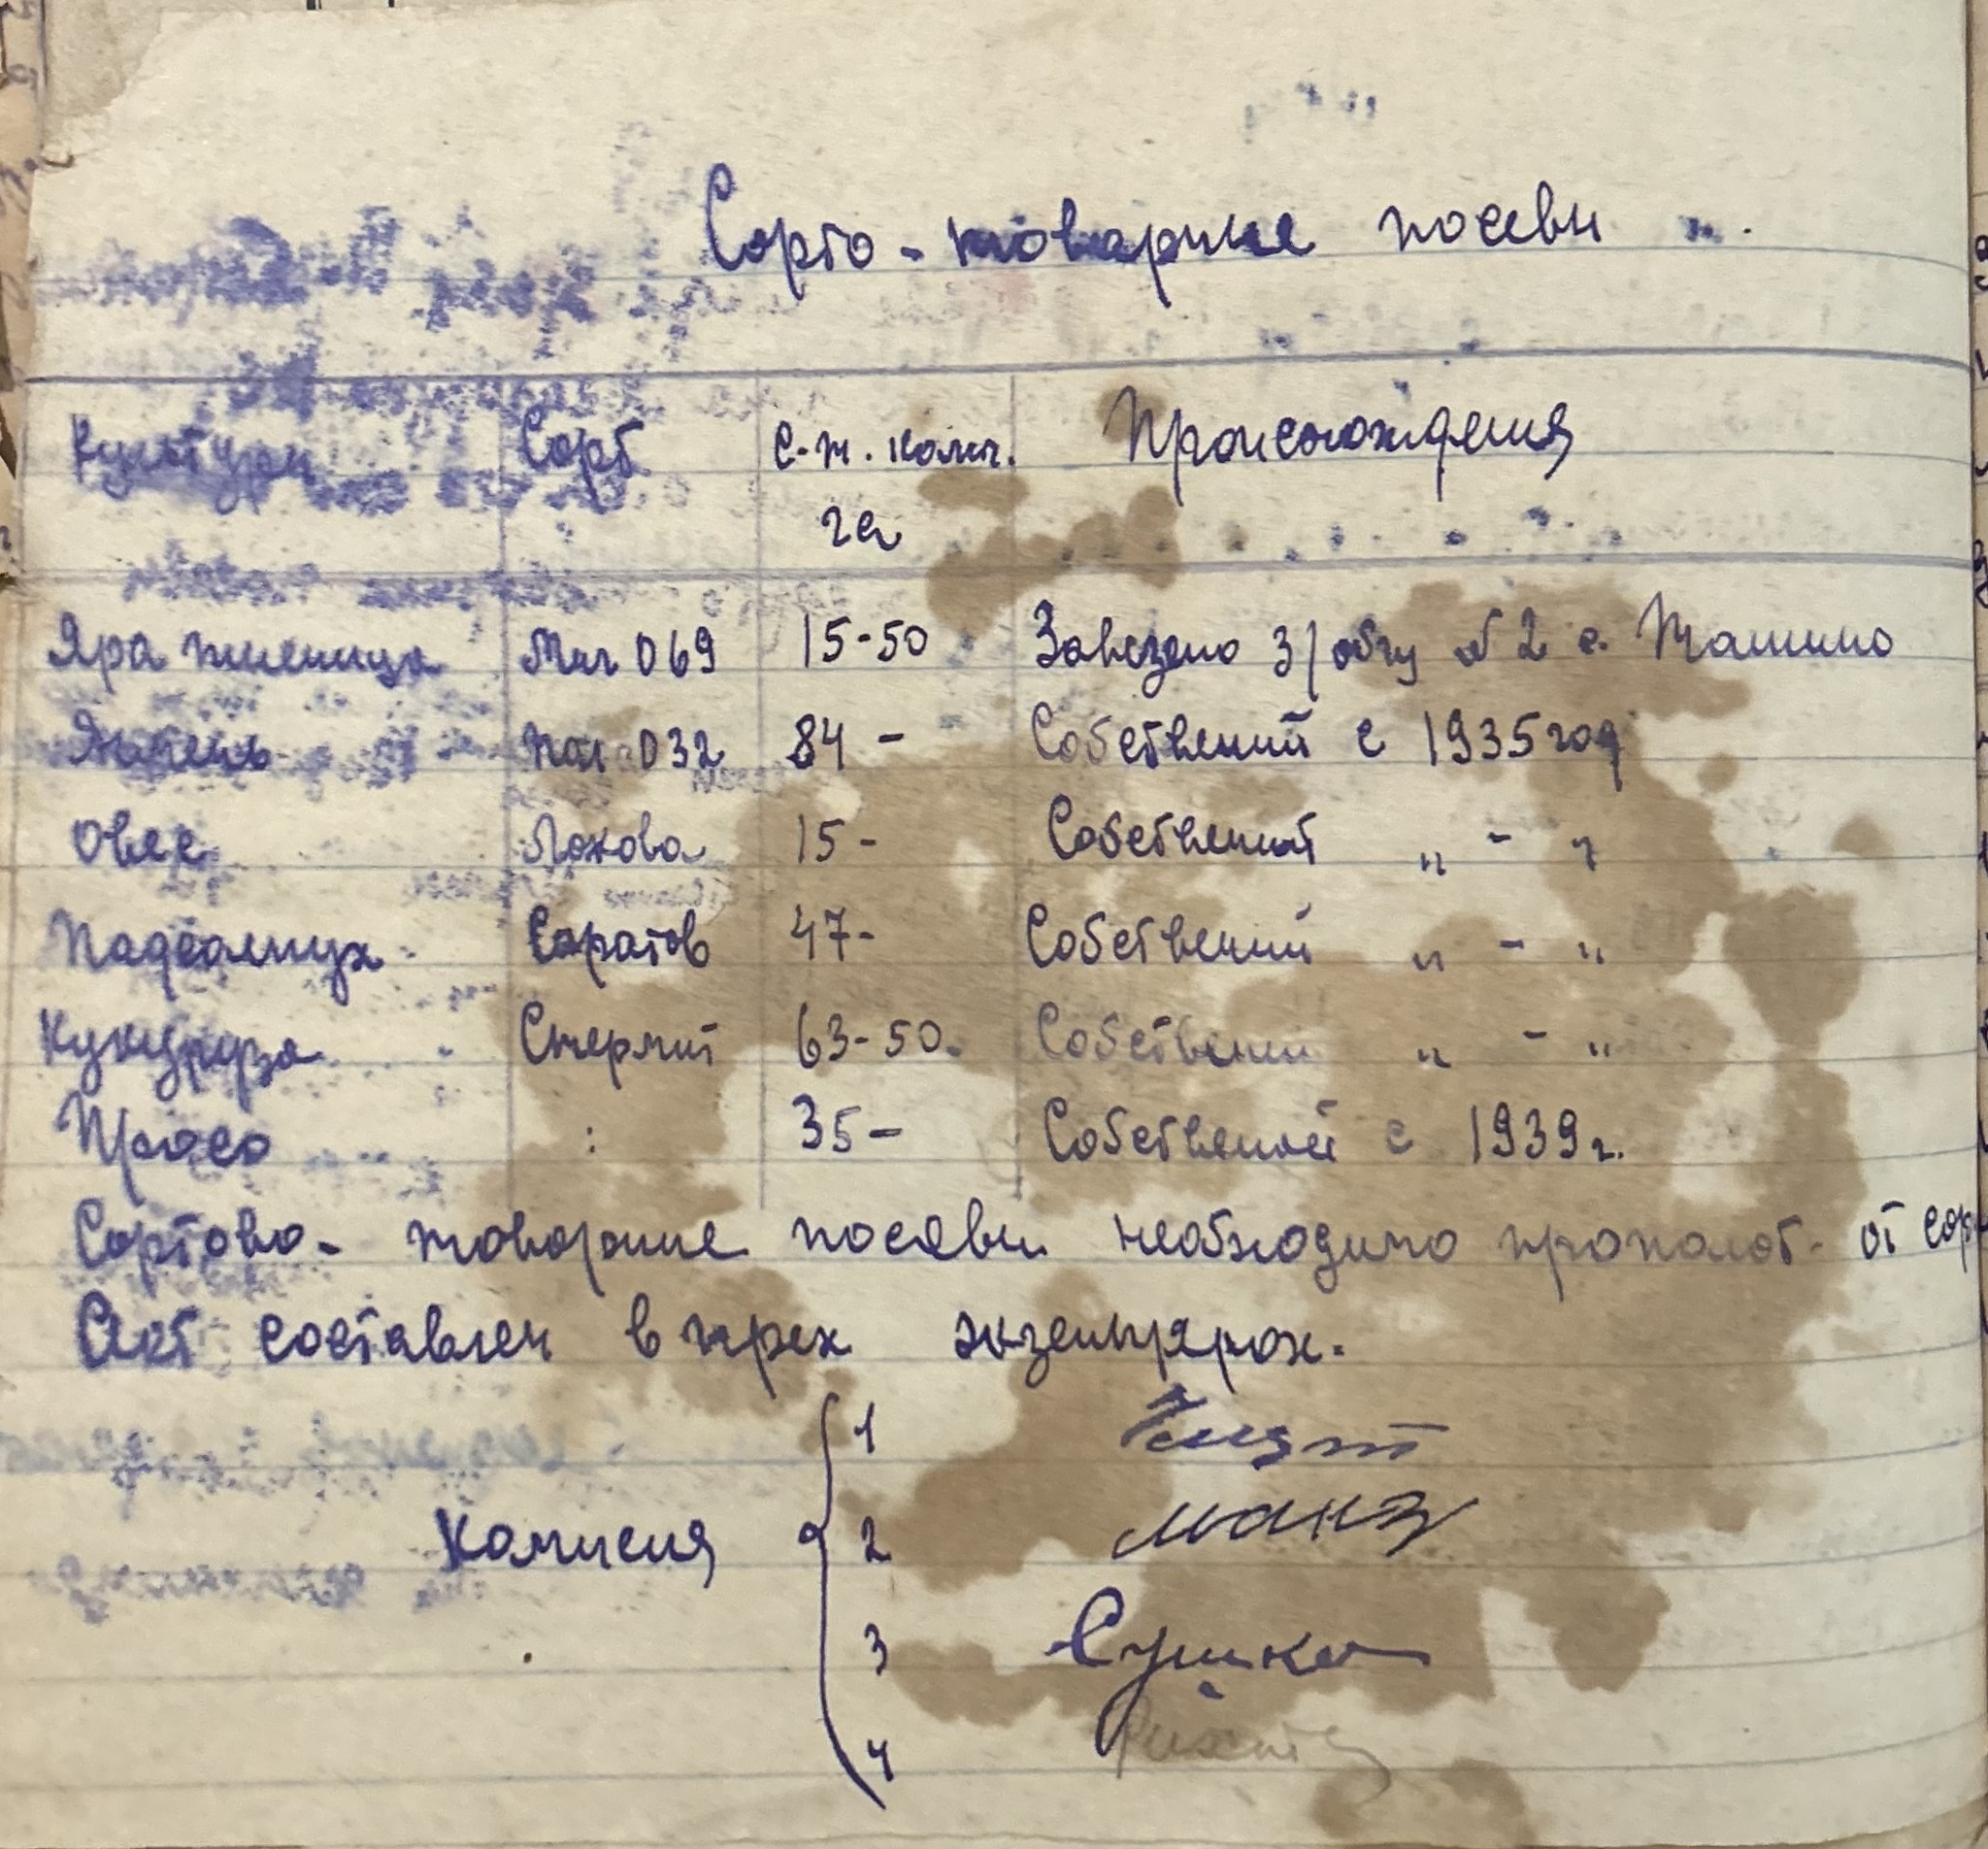 Сорто - товарные посевы
Культуры Сорт с-ж. колич. Происхождения
га
Яра пшеница 069 15-50 Завезено 3/ обму с 2 с.
Ячмень 032 84 - Собственний с 1935 год
Овес Лохова 15 - Собственний " - "
Падсолнух Саратов 47- Собственний " - "
Кукуруза Стерлит 63-50. Собственний " - "
Просо : 35 - Собственной с 1939 г.
Сортово - товарные посявы необходимо прополот - от
Акт составлен в трех экземплярах.
1
Комисия 2
3 Сушко
4